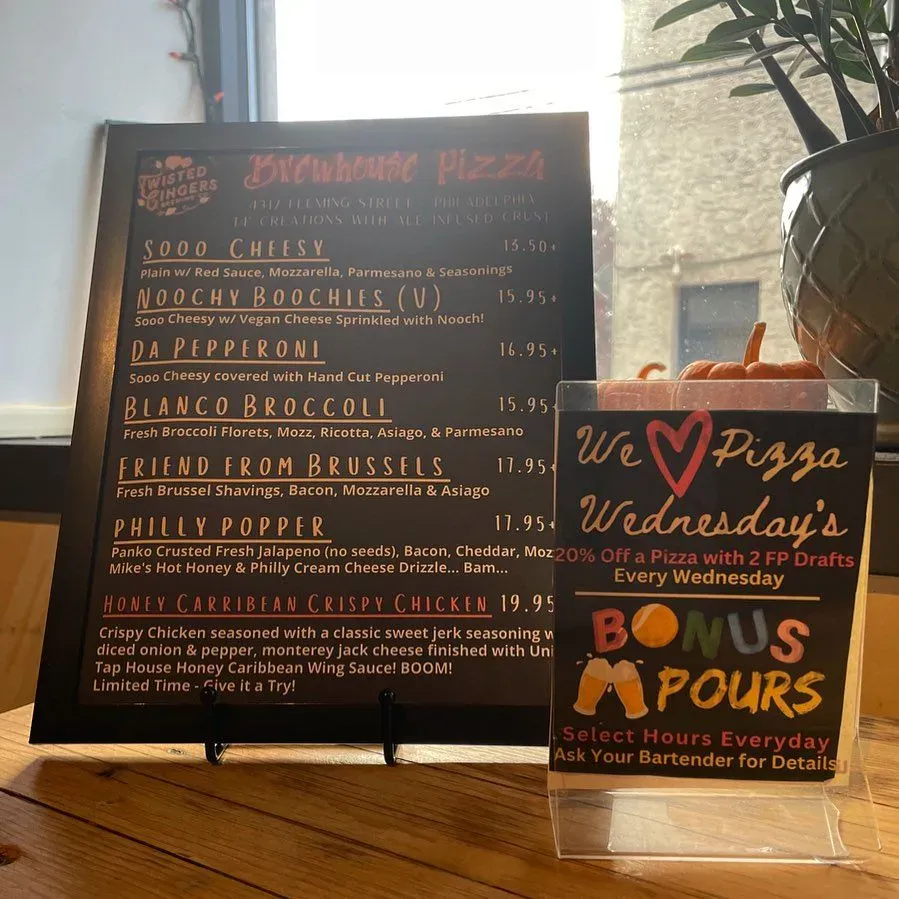 TWISTED
GINGERS
BREWING CO.
Brewhouse Pizza
4312 FLEMING STREET - PHILADELPHIA
14" CREATIONS WITH ALE INFUSED CRUST
SOOO CHEESY 13.50+
Plain w/ Red Sauce, Mozzarella, Parmesano & Seasonings
NOOCHY BOOCHIES (V) 15.95+
Sooo Cheesy w/ Vegan Cheese Sprinkled with Nooch!
DA PEPPERONI 16.95+
Sooo Cheesy covered with Hand Cut Pepperoni
BLANCO BROCCOLI 15.95+
Fresh Broccoli Florets, Mozz, Ricotta, Asiago, & Parmesano
FRIEND FROM BRUSSELS 17.95+
Fresh Brussel Shavings, Bacon, Mozzarella & Asiago
PHILLY POPPER 17.95+
Panko Crusted Fresh Jalapeno (no seeds), Bacon, Cheddar, Moz
Mike's Hot Honey & Philly Cream Cheese Drizzle... Bam...
HONEY CARRIBEAN CRISPY CHICKEN 19.95
Crispy Chicken seasoned with a classic sweet jerk seasoning w
diced onion & pepper, monterey jack cheese finished with Uni
Tap House Honey Caribbean Wing Sauce! BOOM!
Limited Time - Give it a Try!
We Pizza
Wednesday's
20% Off a Pizza with 2 FP Drafts
Every Wednesday
BONUS
POURS
Select Hours Everyday
Ask Your Bartender for Details